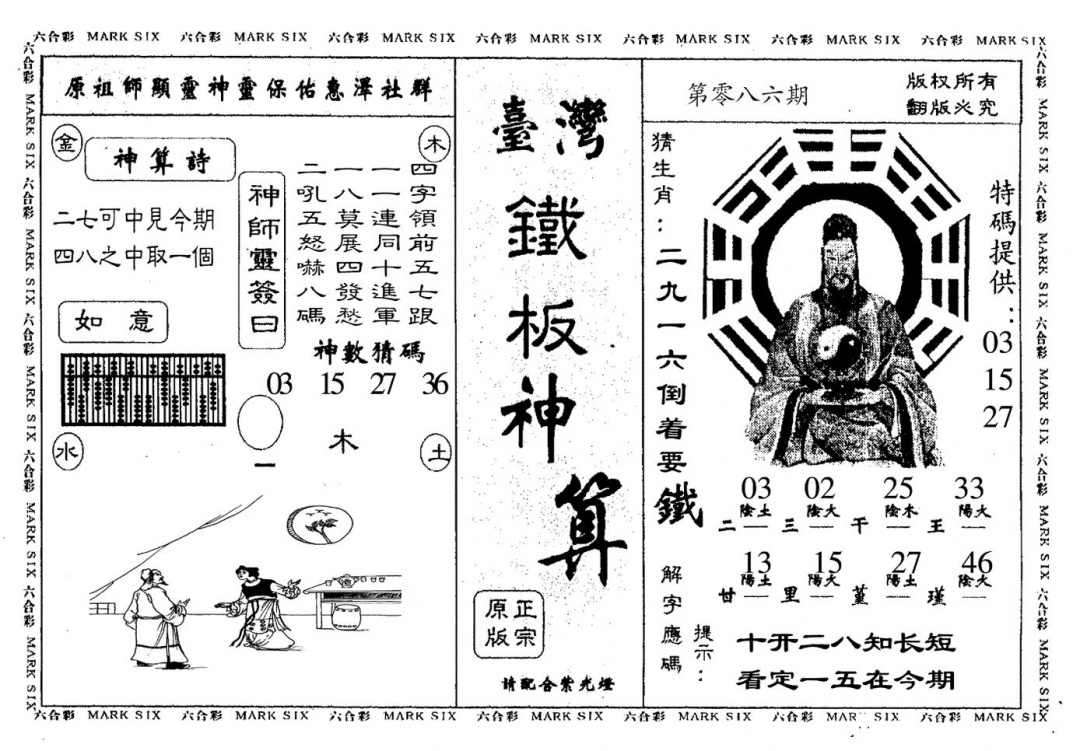 六合彩 MARK SIX 六合彩 MARK SIX 六合彩 MARK SIX 六合彩 MARK SIX 六合彩 MARK SIX 六合彩 MARK SIX 六合彩 MARK SIX
六合彩 MARK SIX 六合彩 MARK SIX 六合彩 MARK SIX 六合彩 MARK SIX 六合彩 MARK SIX
原祖師顯靈神靈保佑惠澤社群
金
木
神算詩
二七可中見今期
四八之中取一個
如意
神師靈簽曰
四字領前五七跟
一一連同十進軍
一八莫展四發愁
二吼五怒嚇八碼
神數猜碼
03 15 27 36
木
一
水
土
臺灣
鐵板神算
正宗
原版
請配合紫光燈
第零八六期
版权所有
翻版必究
猜生肖:二九一六倒着要鐵
特碼提供:
03
15
27
03 02 25 33
陰土 陰火 陰木 陽火
二 三 干 王
13 15 27 46
陽土 陽火 陽土 陰火
甘 里 堇 瑾
解字應碼
提示:
十开二八知长短
看定一五在今期
六合彩 MARK SIX 六合彩 MARK SIX 六合彩 MARK SIX 六合彩 MARK SIX 六合彩 MARK SIX
六合彩 MARK SIX 六合彩 MARK SIX 六合彩 MARK SIX 六合彩 MARK SIX 六合彩 MARK SIX 六合彩 MARK SIX 六合彩 MARK SIX